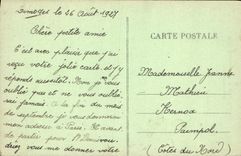 Limoges le 26 Août 1927
Chère petite amie
C'est avec plaisir que j'ai
reçu votre jolie carte et j'y
répond aussitôt. Non je vous
oublie pas et ne vous oublie
rai jamais. A la fin du mois
de septembre je vous donnerai
mon adresse à Paris. Avant
de partir
driez vous me donner votre
CARTE POSTALE
Mademoiselle Jeanne
Mathieu
Kernoa
Paimpol
(Côtes du Nord)